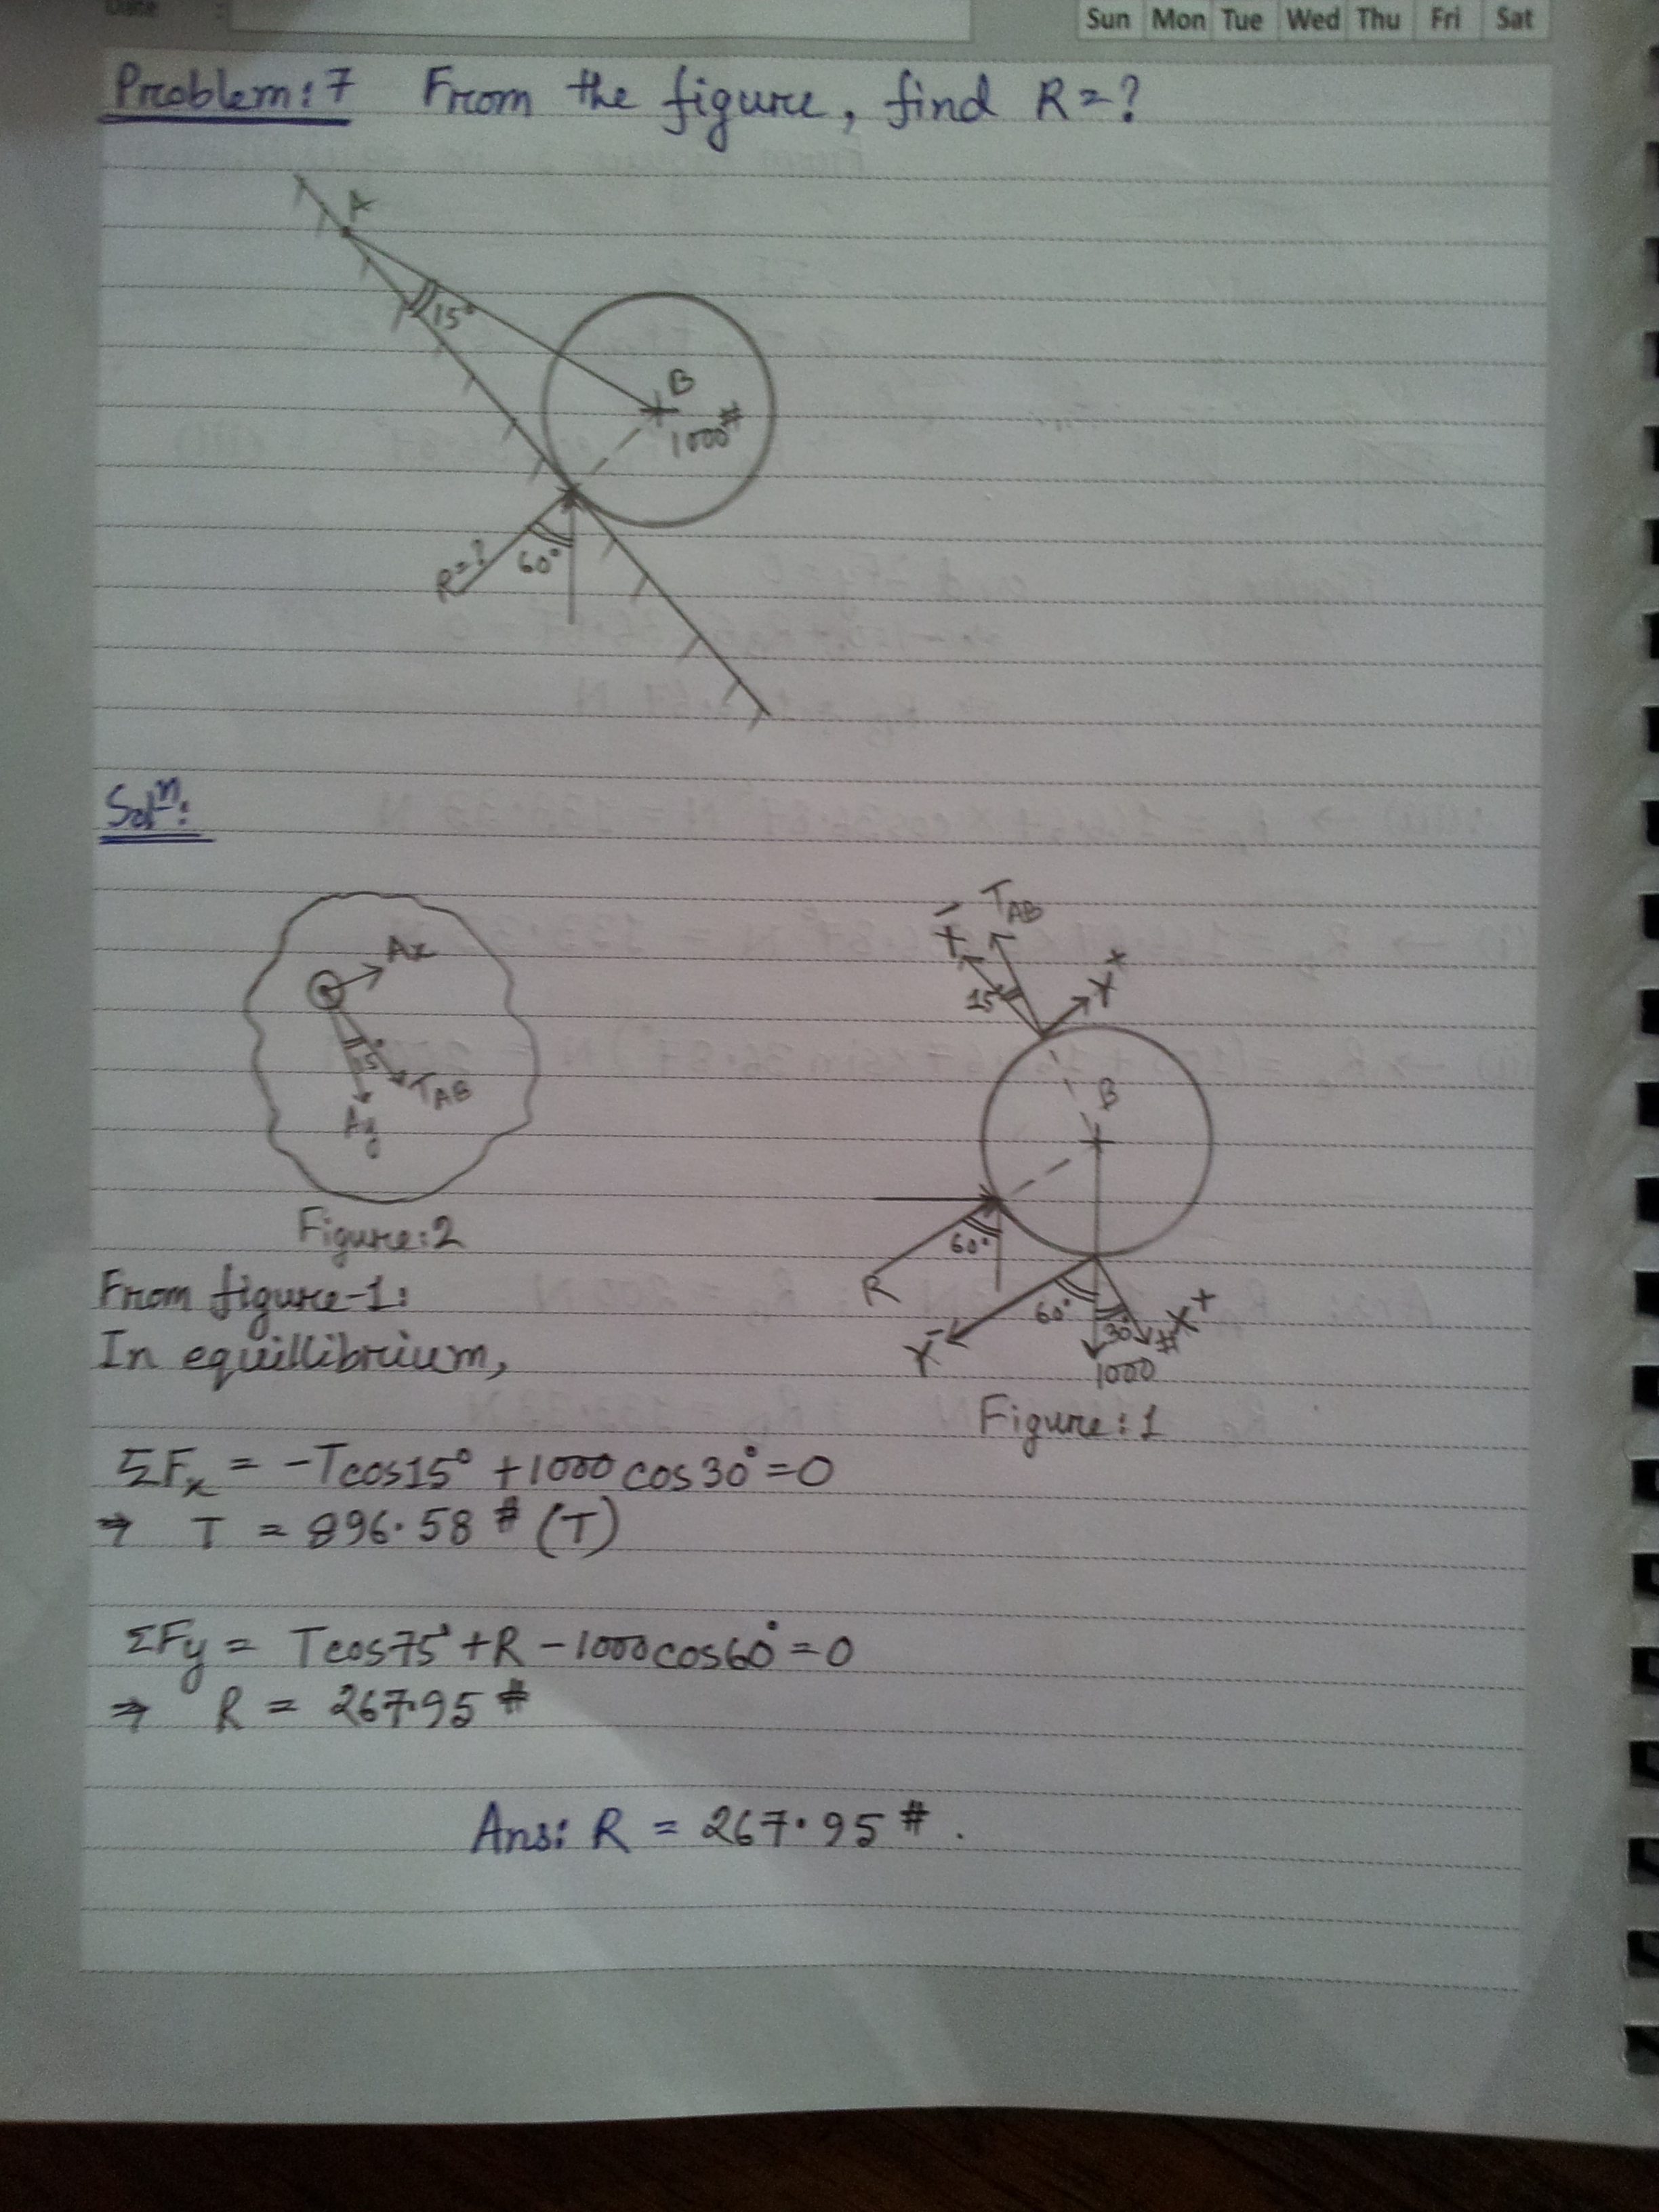 Date :
Sun Mon Tue Wed Thu Fri Sat
Problem:7 From the figure, find R=?
A
15°
B
1000#
R=?
60°
Solⁿ:
Ax
15°
TAB
Ay
Figure:2
TAB
X⁻
15°
Y⁺
B
60°
R
60°
30°
X⁺
Y⁻
1000#
Figure:1
From figure-1:
In equillibrium,
ΣFx = -Tcos15° +1000 cos30°=0
⇒ T = 896.58 # (T)
ΣFy = Tcos75°+R-1000cos60°=0
⇒ R = 267.95 #
Ans: R = 267.95 # .